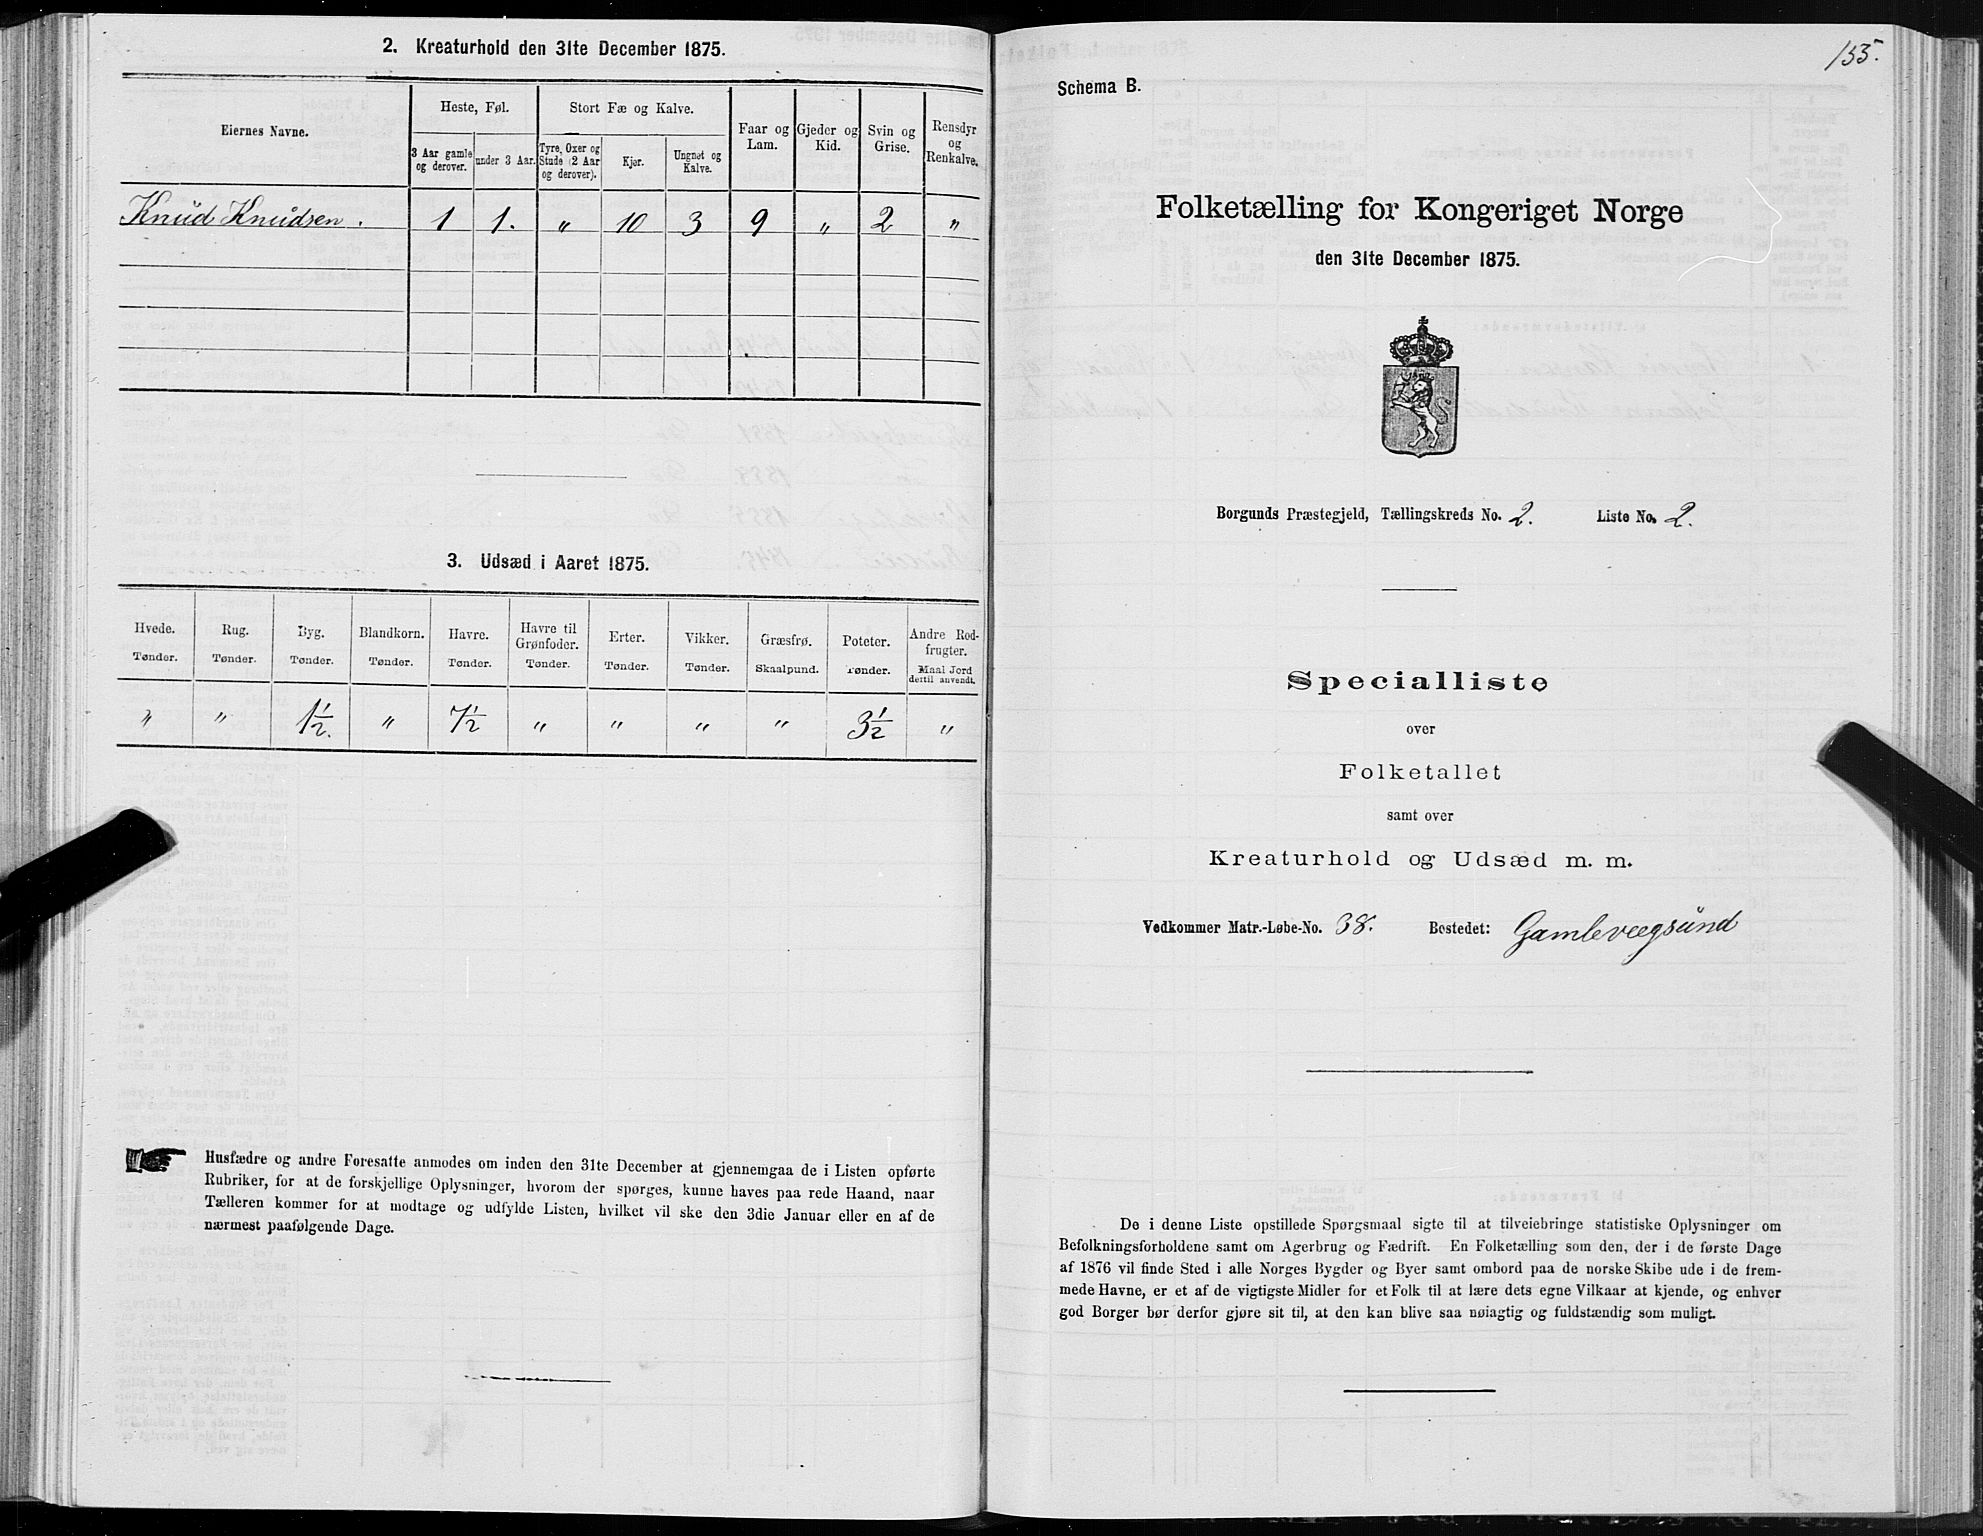 2. Kreaturhold den 31te December 1875.
Eiernes Navne.
Heste, Føl.
Stort Fæ og Kalve.
Faar og Lam.
Gjeder og Kid.
Svin og Grise.
Rensdyr og Renkalve.
3 Aar gamle og derover.
under 3 Aar.
Tyre, Oxer og Stude (2 Aar og derover).
Kjør.
Ungnøt og Kalve.
Knud Knudsen. 1 1. " 10 3 9 " 2 "
3. Udsæd i Aaret 1875.
Hvede. Rug. Byg. Blandkorn. Havre. Havre til Grønfoder. Erter. Vikker. Græsfrø. Poteter. Andre Rodfrugter.
Tønder. Tønder. Tønder. Tønder. Tønder. Tønder. Tønder. Tønder. Skaalpund. Tønder. Maal Jord dertil anvendt.
" " 1½. " 7½ " " " " 3½ "
Husfædre og andre Foresatte anmodes om inden den 31te December at gjennemgaa de i Listen opførte
Rubriker, for at de forskjellige Oplysninger, hvorom der spørges, kunne haves paa rede Haand, naar
Tælleren kommer for at modtage og udfylde Listen, hvilket vil ske den 3die Januar eller en af de
nærmest paafølgende Dage.
155.
Schema B.
Folketælling for Kongeriget Norge
den 31te December 1875.
Borgunds Præstegjeld, Tællingskreds No. 2. Liste No. 2.
Specialliste
over
Folketallet
samt over
Kreaturhold og Udsæd m. m.
Vedkommer Matr.-Løbe-No. 38. Bostedet: Gamleveegsund
De i denne Liste opstillede Spørgsmaal sigte til at tilveiebringe statistiske Oplysninger om
Befolkningsforholdene samt om Agerbrug og Fædrift. En Folketælling som den, der i de første Dage
af 1876 vil finde Sted i alle Norges Bygder og Byer samt ombord paa de norske Skibe ude i de frem-
mede Havne, er et af de vigtigste Midler for et Folk til at lære dets egne Vilkaar at kjende, og enhver
god Borger bør derfor gjøre sit til, at den kan blive saa nøiagtig og fuldstændig som muligt.